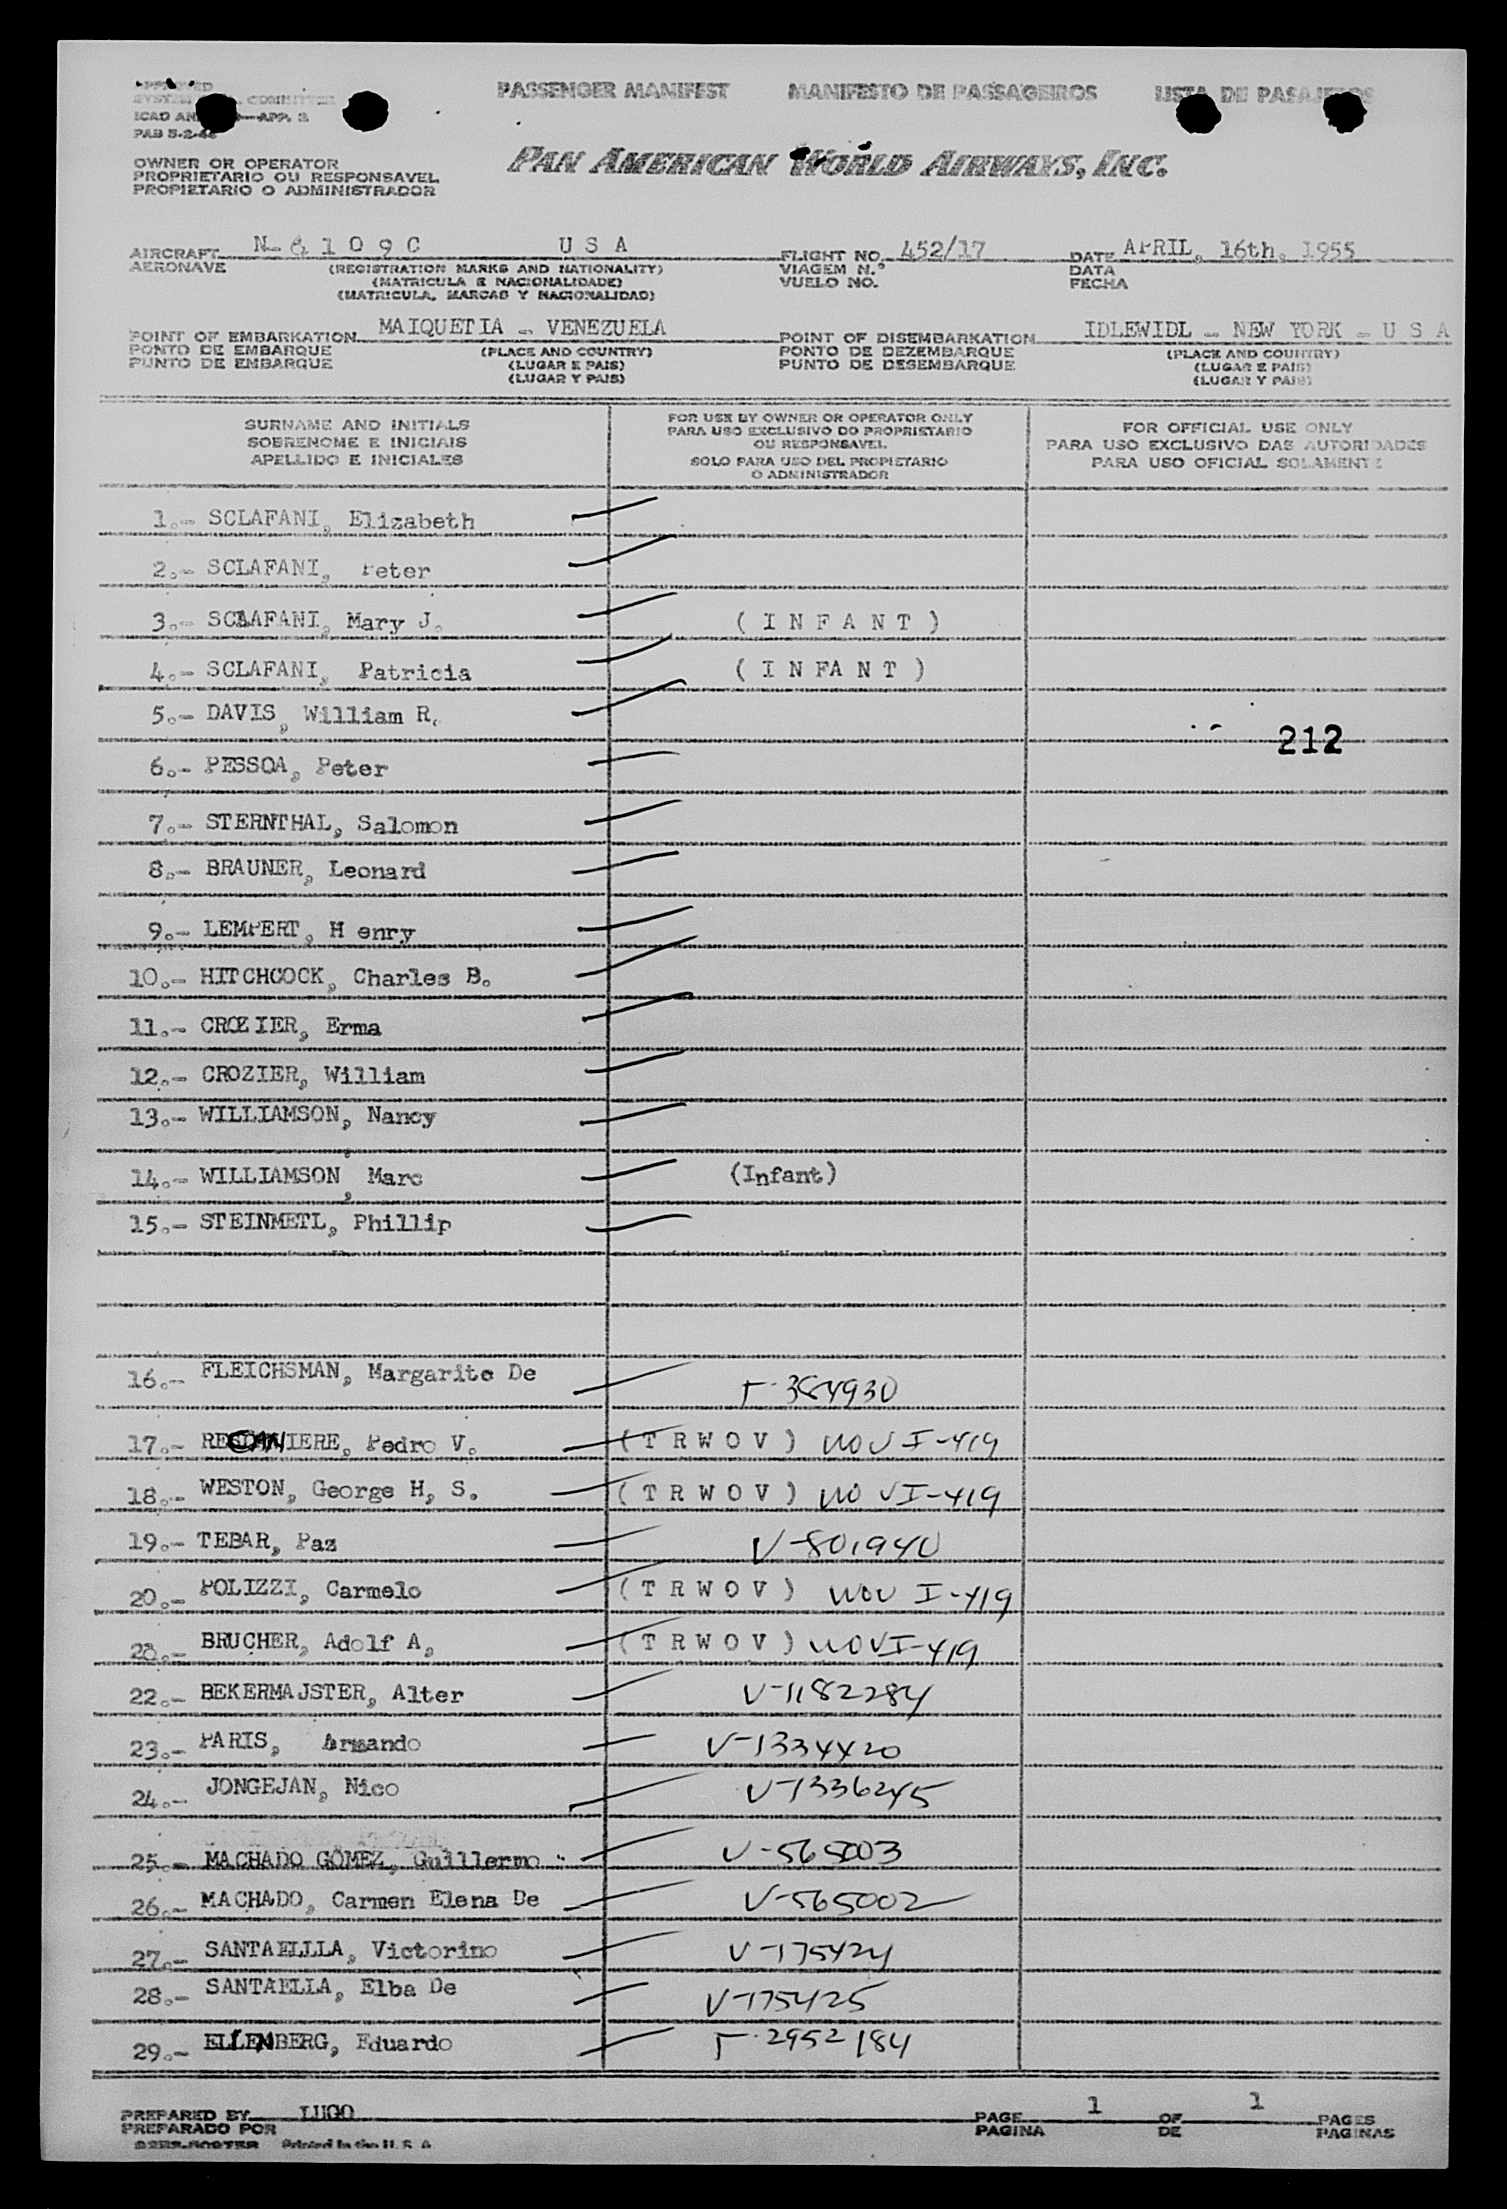 PASSENGER MANIFEST MANIFESTO DE PASSAGEIROS LISTA DE PASAJEROS
PAB 5-2-46
OWNER OR OPERATOR
PROPRIETARIO OU RESPONSAVEL
PROPIETARIO O ADMINISTRADOR
PAN AMERICAN WORLD AIRWAYS, INC.
AIRCRAFT N-6109C USA FLIGHT NO. 452/17 DATE APRIL, 16th, 1955
AERONAVE (REGISTRATION MARKS AND NATIONALITY) VIAGEM N.° DATA
(MATRICULA E NACIONALIDADE) VUELO NO. FECHA
(MATRICULA, MARCAS Y NACIONALIDAD)
POINT OF EMBARKATION MAIQUETIA - VENEZUELA POINT OF DISEMBARKATION IDLEWIDL - NEW YORK - U S A
PONTO DE EMBARQUE (PLACE AND COUNTRY) PONTO DE DEZEMBARQUE (PLACE AND COUNTRY)
PUNTO DE EMBARQUE (LUGAR E PAIS) PUNTO DE DESEMBARQUE (LUGAR E PAIS)
(LUGAR Y PAIS) (LUGAR Y PAIS)
SURNAME AND INITIALS
SOBRENOME E INICIAIS
APELLIDO E INICIALES
FOR USE BY OWNER OR OPERATOR ONLY
PARA USO EXCLUSIVO DO PROPRIETARIO
OU RESPONSAVEL
SOLO PARA USO DEL PROPIETARIO
O ADMINISTRADOR
FOR OFFICIAL USE ONLY
PARA USO EXCLUSIVO DAS AUTORIDADES
PARA USO OFICIAL SOLAMENTE
1.- SCLAFANI, Elizabeth
2.- SCLAFANI, Peter
3.- SCLAFANI, Mary J. ( I N F A N T )
4.- SCLAFANI, Patricia ( I N FA N T )
5.- DAVIS, William R.
212
6.- PESSOA, Peter
7.- STERNTHAL, Salomon
8.- BRAUNER, Leonard
9.- LEMPERT, H enry
10.- HITCHCOCK, Charles B.
11.- CROZIER, Erma
12.- CROZIER, William
13.- WILLIAMSON, Nancy
14.- WILLIAMSON, Marc (Infant)
15.- STEINMETL, Phillip
16.- FLEICHSMAN, Margarite De T-384930
17.- RESCANIERE, Pedro V. ( T R W O V ) NOV I-419
18.- WESTON, George H, S. ( T R W O V ) NO V I-419
19.- TEBAR, Paz V-801940
20.- POLIZZI, Carmelo ( T R W O V ) NOV I-419
BRUCHER, Adolf A, ( T R W O V ) NOV I-419
22.- BEKERMAJSTER, Alter V-1182284
23.- PARIS, Armando V-1334420
24.- JONGEJAN, Nico V-1336245
25.- MACHADO GÓMEZ, Guillermo V-565003
26.- MACHADO, Carmen Elena De V-565002
27.- SANTAELLLA, Victorino V-175424
28.- SANTAELLA, Elba De V-175425
29.- ELLENBERG, Eduardo T-2952184
PREPARED BY LUGO PAGE 1 OF 1 PAGES
PREPARADO POR PAGINA DE PAGINAS
Printed in the U. S. A.